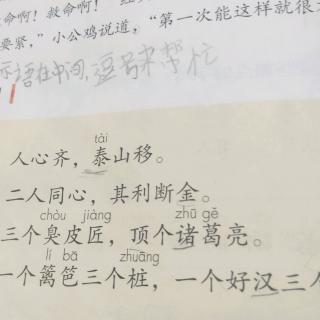 命啊！救命啊！
要紧，”小公鸡说道，“第一次能这样就很
示语在中间，逗号来帮忙
tài
人心齐，泰山移。
二人同心，其利断金。
chòu jiàng zhū gě
三个臭皮匠，顶个诸葛亮。
lí bā zhuāng
一个篱笆三个桩，一个好汉三